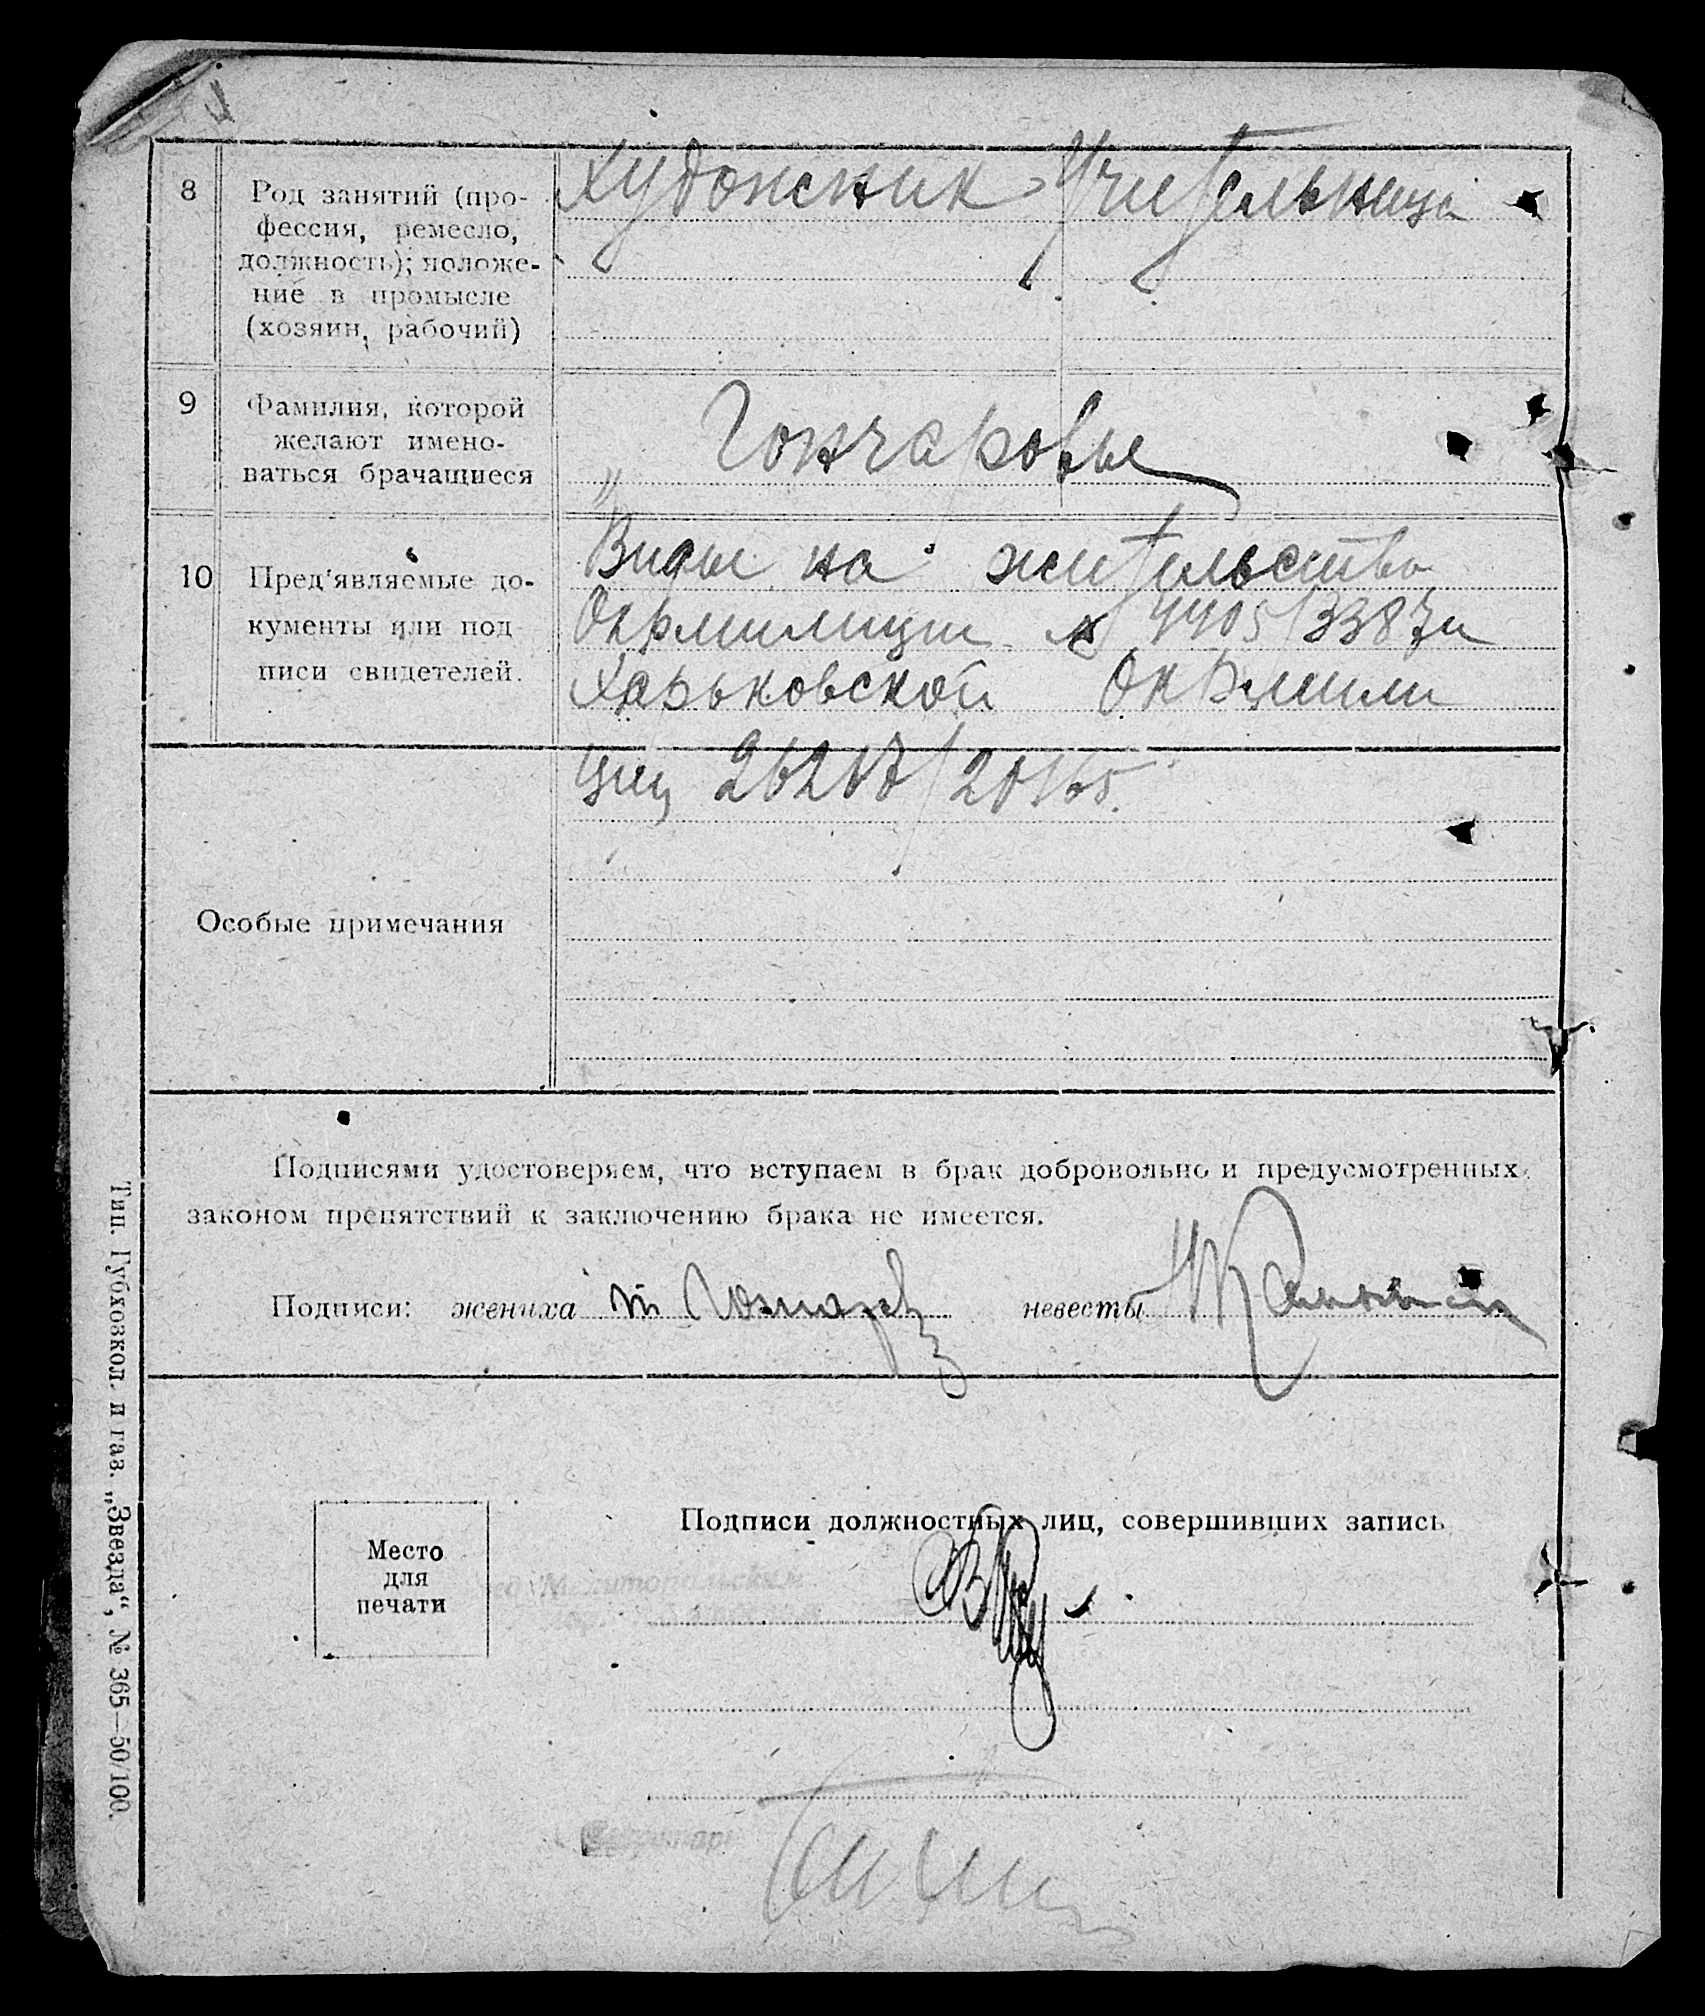 8 Род занятий (про- Художник Учительница
фессия, ремесло,
должность); положе-
ние в промысле
(хозяин, рабочий)
9 Фамилия, которой Гончаровы
желают имено-
ваться брачащиеся
10 Пред'являемые до- Виды на жительство
кументы или под Окрмилиции № 3387 и
писи свидетелей. Харьковской Окрмили
ции
Особые примечания
Подписями удостоверяем, что вступаем в брак добровольно и предусмотренных
законом препятствий к заключению брака не имеется.
Подписи: жениха невесты
Подписи должностных лиц, совершивших запись
Место
для
печати
Мелитопольским
Секретарь
Тип. Губхозкол. и газ. „Звезда“, № 365—50/100.